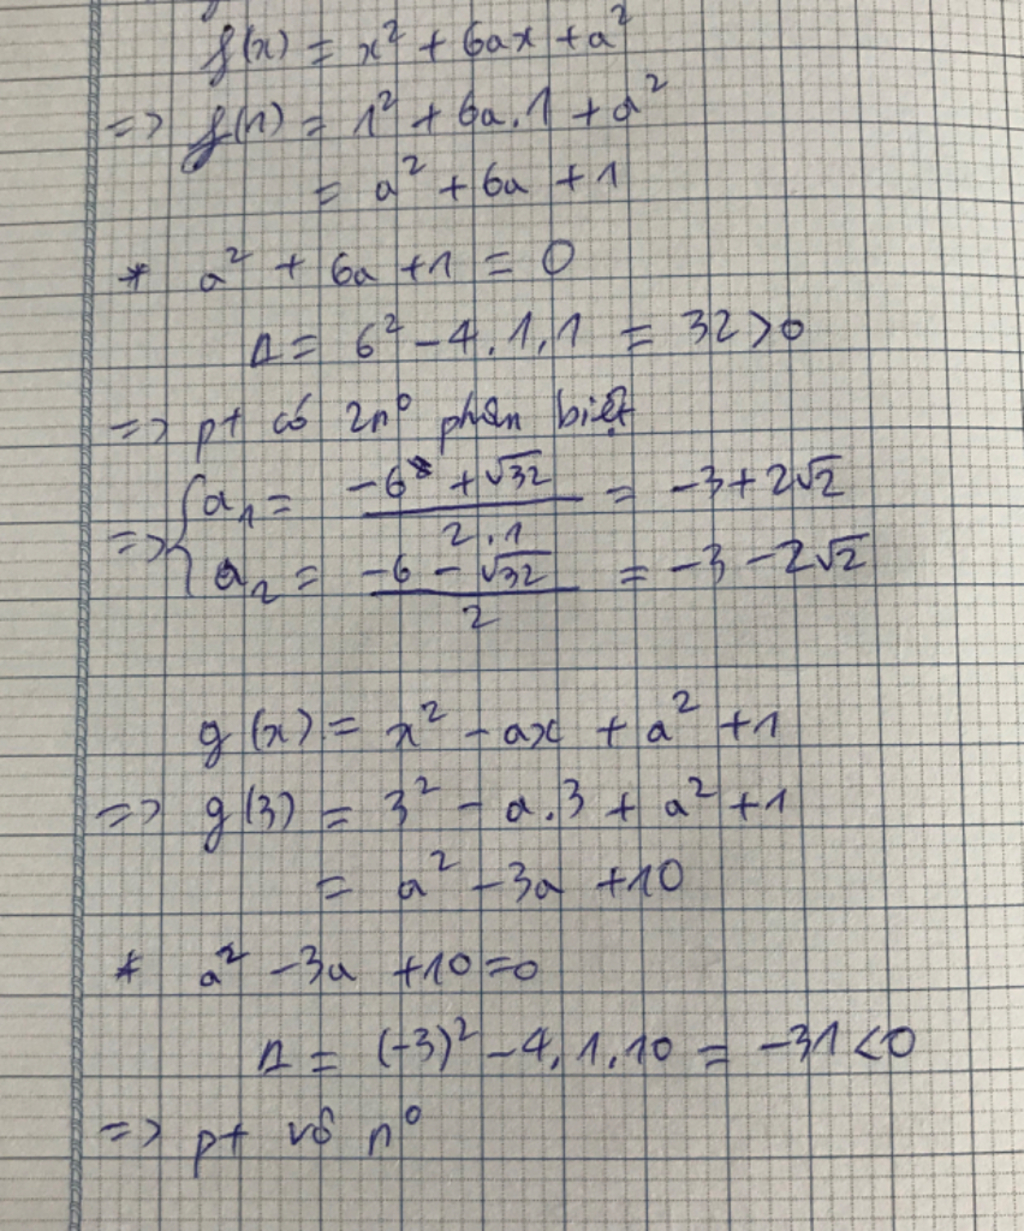 f(x) = x² + 6ax + a²
=> f(1) = 1² + 6a.1 + a²
= a² + 6a + 1
* a² + 6a + 1 = 0
Δ = 6² - 4.1.1 = 32 > 0
=> pt có 2n⁰ phân biệt
=> { a₁ = (-6 + √32)/(2.1) = -3 + 2√2
a₂ = (-6 - √32)/2 = -3 - 2√2
g(x) = x² - ax + a² + 1
=> g(3) = 3² - a.3 + a² + 1
= a² - 3a + 10
* a² - 3a + 10 = 0
Δ = (-3)² - 4.1.10 = -31 < 0
=> pt vô n⁰